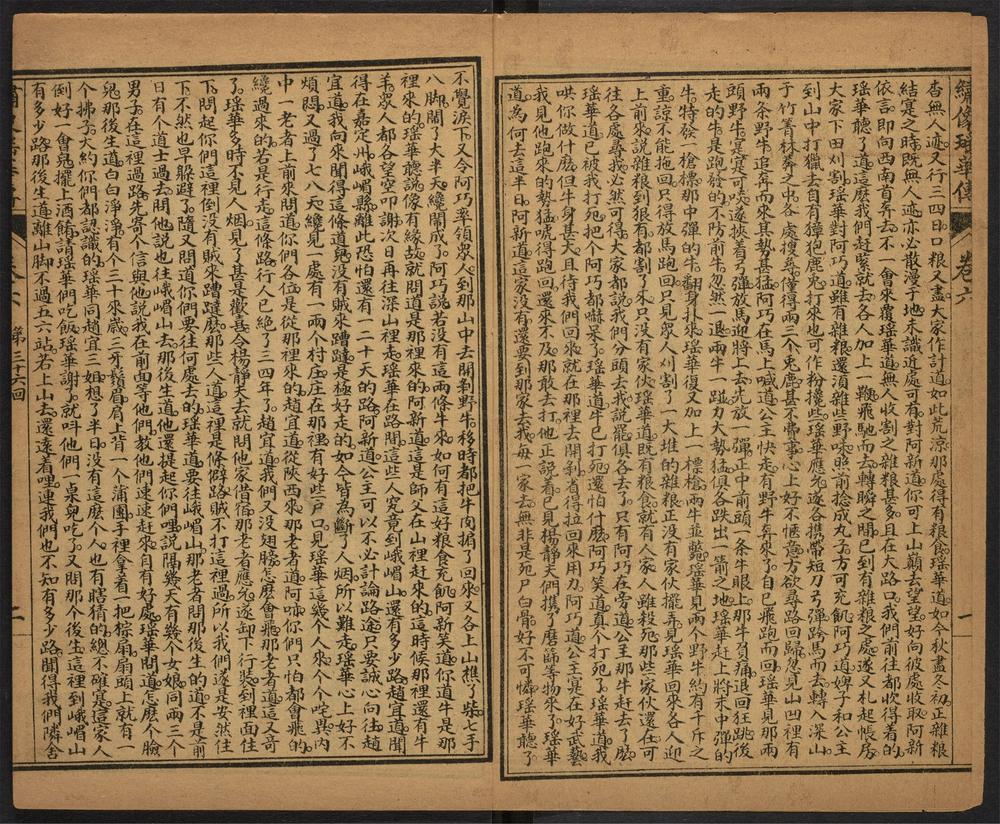 繪像瑤華傳 卷六 一
杳無人迹又行三四日口粮又盡大家作計道如此荒涼那處得有粮食瑤華道如今秋盡冬初正雜粮
結寔之時既無人迹亦必散漫于地未識近處可有對阿新道你可上山巔去望望好向彼處收取阿新
依言即向西南首弄去不一會來覆瑤華道無人收割之雜粮甚多且在大路口我們前往都收得着的
瑤華聽了道這麽我們赶緊就去各人加上一鞭飛馳而去轉瞬之間已到有雜粮之處遂又札起帳房
大家下田刈割瑤華對阿巧道雖有雜粮還須雜些野味照前捻成丸子方可充飢阿巧道婢子和公主
到山中打獵去自有獐狍鹿兔打來也可作粉攙些瑤華應允遂各攜帶短刀弓彈跨馬而去轉入深山
于竹菁林莽之中各處搜尋僅得兩三个兎麂甚不費事心上好不愜意方欲尋路回歸忽見山凹裡有
兩条野牛追奔而來其勢甚猛阿巧在馬上喊道公主快走有野牛奔來了自已飛跑而回瑤華見那兩
頭野牛寔寔可㗖遂挾着弓彈放馬迎將上去先放一彈正中前頭一条牛眼上那牛負痛退回狂跳後
走的牛是跑發的不防前牛忽然一退兩牛一踫力大勢猛俱各跌出一箭之地瑤華赶上將未中彈的
牛特發一槍標那中彈的牛翻身扑來瑤華復又加上一標槍兩牛並斃瑤華見兩个野牛約有千斤之
重諒不能拖回只得放馬跑回只見衆人刈割了一大堆的雜粮正没有家伙擺弄見瑤華回來各人迎
上前來說雜粮到狠有都割了來只没有家伙瑤華道既有粮食就有人家人雖殺死那些家伙還在可
往各處尋我必然可得大家都說我們分頭去我說罷俱各去了只有阿巧在旁道公主那牛赶去了麽
瑤華道已被我打死把个阿巧都嚇呆了瑤華道牛已打死還怕什麽阿巧笑道真个打死了瑤華道我
哄你做什麽但牛身甚大且待我們回來就在那裡去開剝省得拉回來用力阿巧道公主寔在好武藝
我見他跑來的勢猛唬得跑回還來不及那敢去打他正說着已見楊靜天們攜了磨篩等物來了瑤華
道為何去這半日阿新道這家没有還要到那家去我每一家去無非是死尸白骨好不可憐瑤華聽了
不覺淚下又令阿巧率領衆人到那山中去開剝野牛移時都把牛肉搨了回來又各上山樵了柴七手
八脚鬧了大半天纔鬧成了阿巧說若没有這兩條牛來如何有這好粮食充飢阿新笑道你道牛是那
裡來的瑤華聽說像有緣故就問道是那裡來的阿新道這是師父在山裡赶來的這時候那裡還有牛
羊衆人都各望空叩謝次日再往深山裡走瑤華在路間這些人究竟到峨嵋山還有多少路趙宜道聞
得在嘉定州峨嵋縣離此恐怕還有一二十天的路阿新道公主可以不必計論路途只要誠心向往趙
宜道我向來聞得這條道兒没有賊來蹧蹋是極好走的如今皆為斷了人烟所以難走瑤華心上好不
煩悶又過了七八天纔見一處有一兩个村庄庄在那裡有好些戸口見瑤華這幾个人來个个咤異内
中一老者上前來問道你們各位是那裡來的趙宜道從陝西來那老者道阿㖿你們只怕都會飛的
纔過來的若是行走這條路行人已絶了三四年了趙宜道我們又没翅膀怎麽會飛那老者道這又奇
了瑤華多時不見人烟見了甚是歡喜令楊靜天去就問他家借宿那老者應允遂卸下行裝到裡面住
下問起你們這裡倒没有賊來蹧蹋麽那些人道這裡是條僻路賊不打這裡過所以我們還是安然住
下不然也早躲避了隨又問道你們要往何處去的瑤華道要往峨嵋山那老者問那後生的道不是前
日有个道士過去問他說也往峨嵋山去那後生道他還提起你們哩說隔幾天有幾个女娘同兩三个
男子在這裡過路先寄个信與他說我在前面等他們教他們速速赶來自有好處瑤華問道怎麽个臉
兒那後生道白白淨淨有个三十來歲三牙鬚眉肩上背一个蒲團手裡拿着一把棕扇扇頭上就有一
个拂子大約你們都認識的瑤華同趙宜三姐想了半日没有這麽个人也有瞎猜的總不確寔這家人
倒好一會兒擺上酒餚請瑤華們吃飯瑤華謝了就呌他們一桌兒吃了又問那个後生這裡到峨嵋山
有多少路那後生道離山脚不過五六站若上山去還遠着哩連我們也不知有多少路聞得我們隣舍
卷六 第三十六回 二